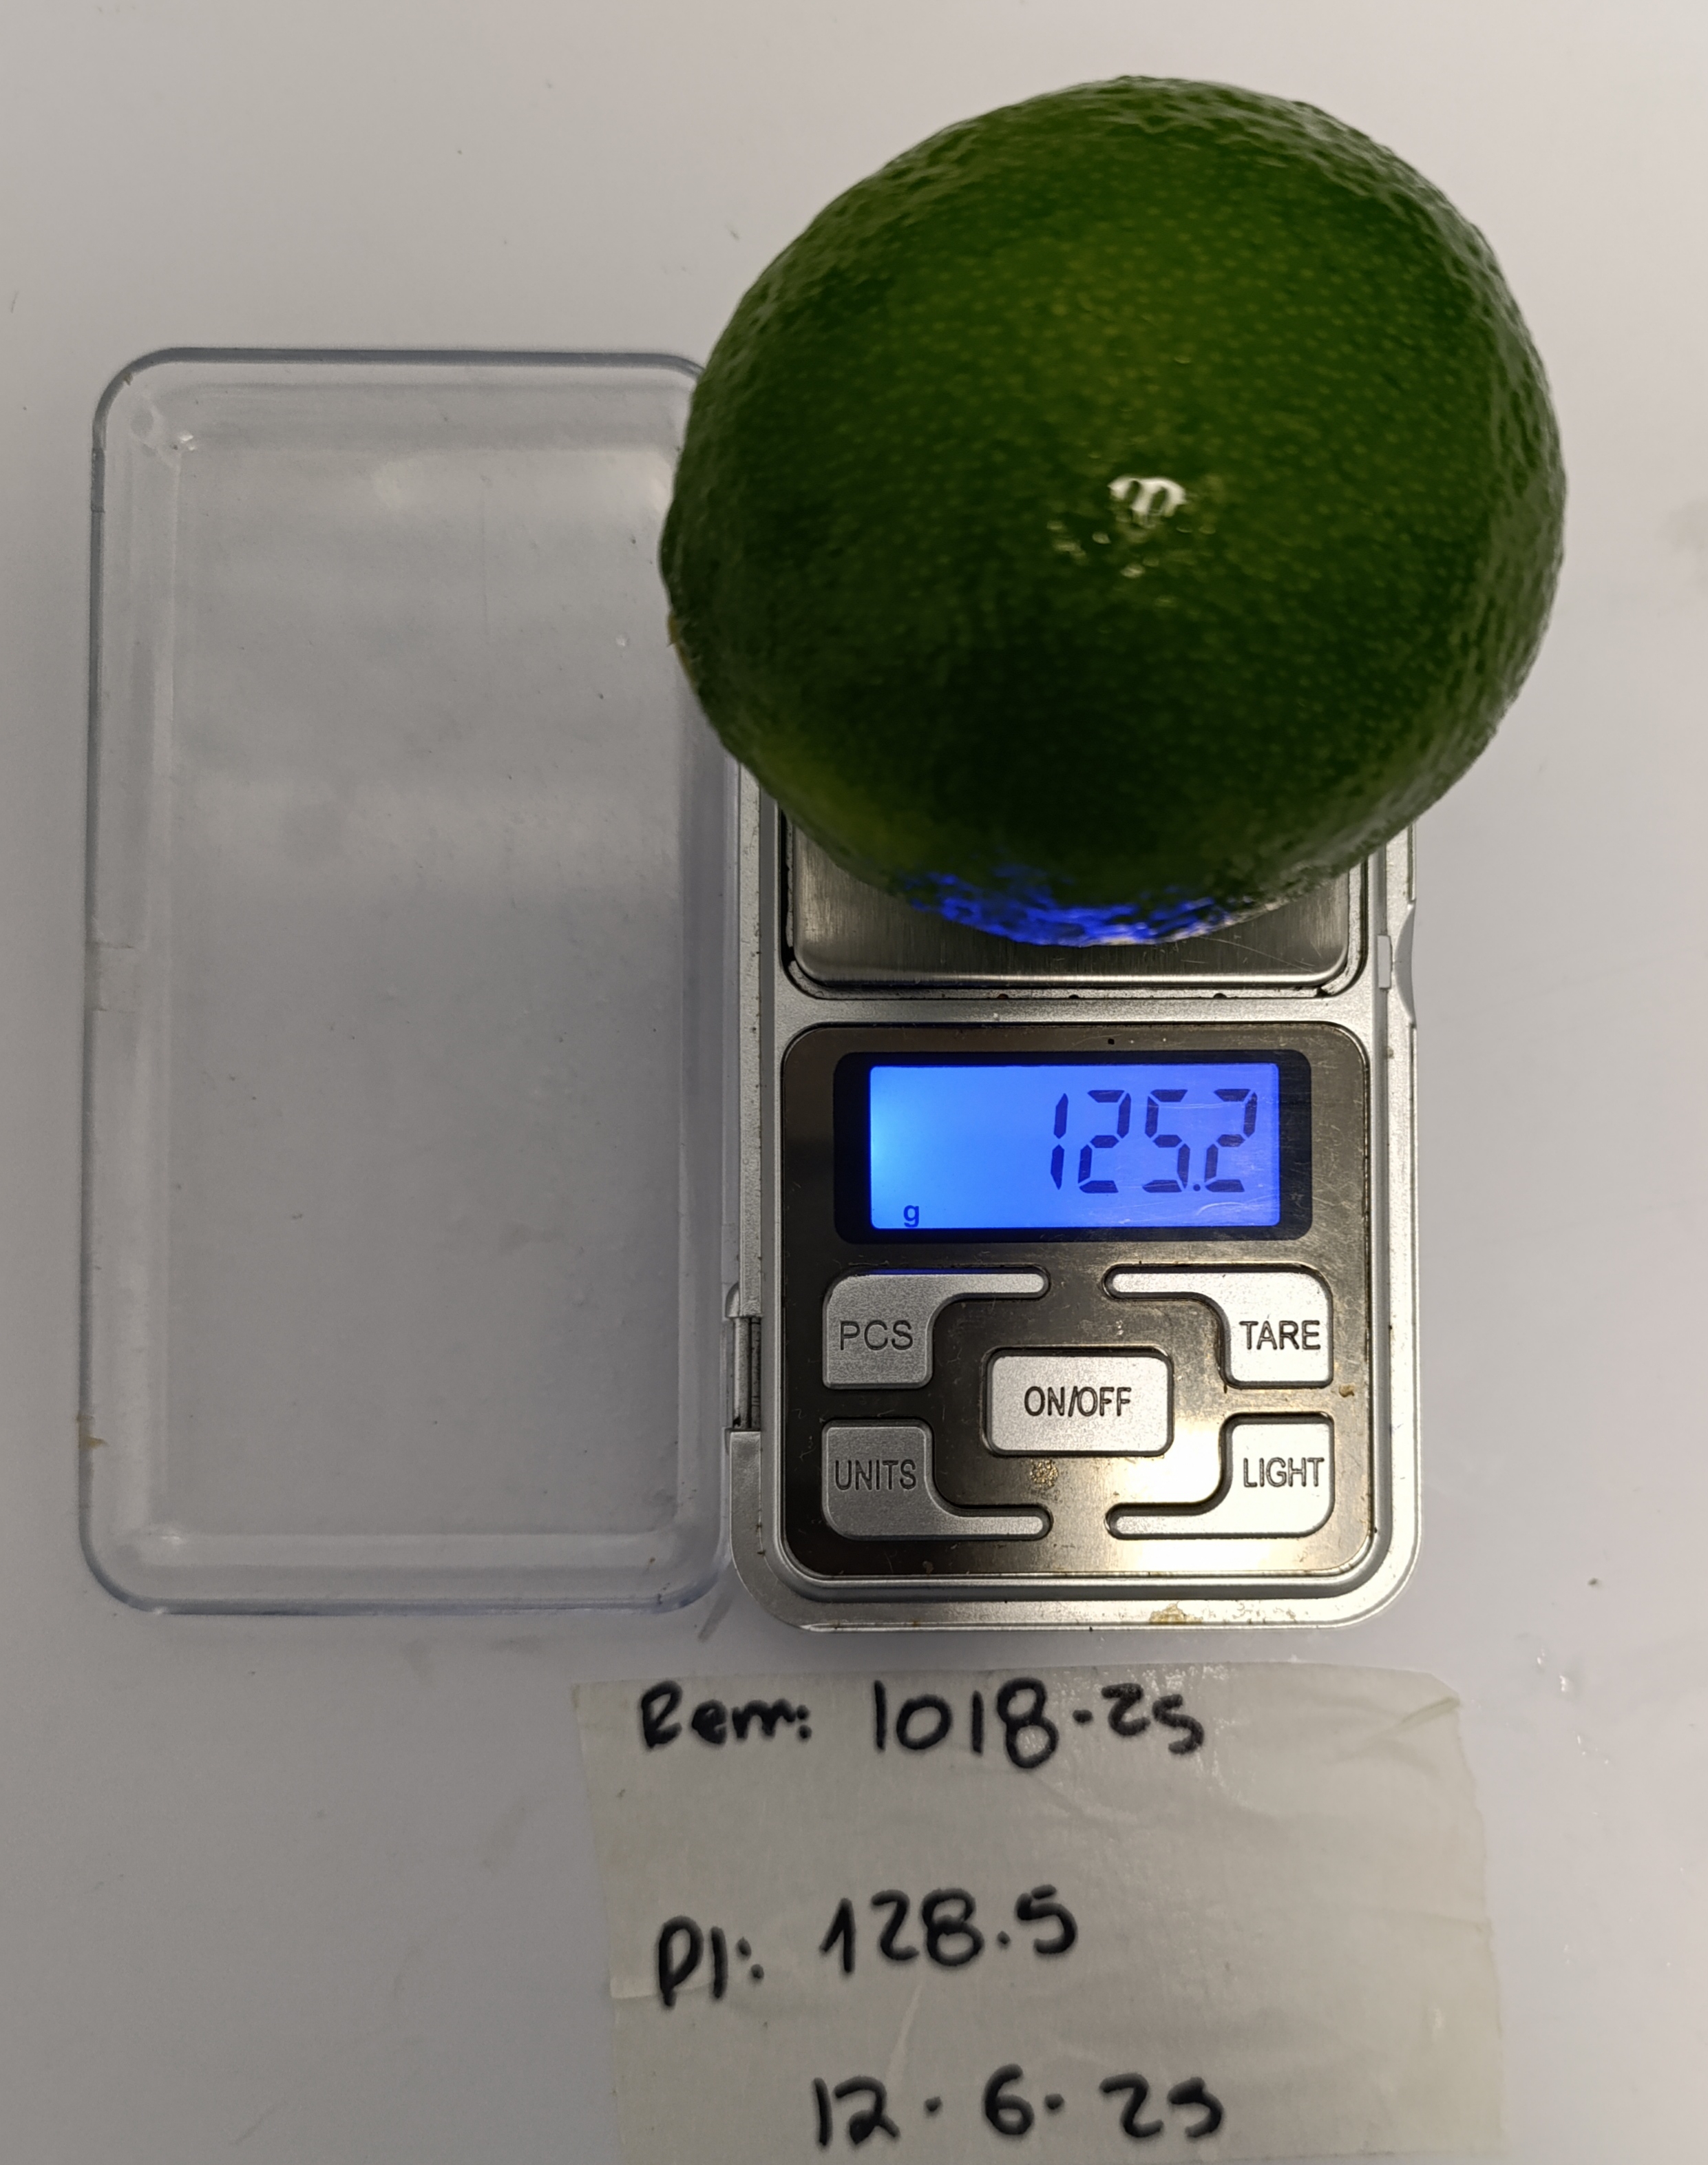 125.2
g
PCS
TARE
ON/OFF
UNITS
LIGHT
Rem: 1018-25
PI: 128.5
12.6.25